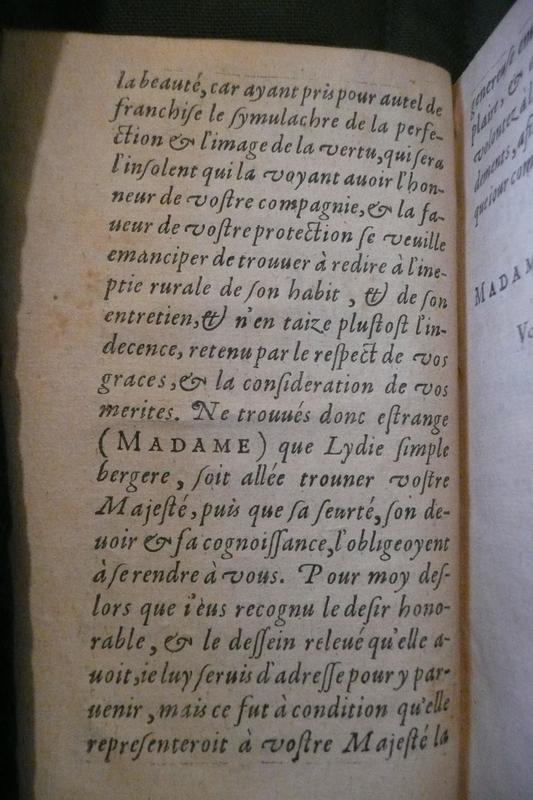 la beauté, car ayant pris pour autel de
franchise le symulachre de la perfe-
ction & l'image de la vertu, qui sera
l'insolent qui la voyant auoir l'hon-
neur de vostre compagnie, & la fa-
ueur de vostre protection se veuille
emanciper de trouuer à redire à l'ine-
ptie rurale de son habit, & de son
entretien, & n'en taize plustost l'in-
decence, retenu par le respect de vos
graces, & la consideration de vos
merites. Ne trouués donc estrange
(MADAME) que Lydie simple
bergere, soit allée trouner vostre
Majesté, puis que sa seurté, son de-
uoir & sa cognoissance, l'obligeoyent
à se rendre à vous. Pour moy des-
lors que i'eus recognu le desir hono-
rable, & le dessein releué qu'elle a-
uoit, ie luy seruis d'adresse pour y par-
uenir, mais ce fut à condition qu'elle
representeroit à vostre Majesté la
plant, &
volontez à l
MADAM